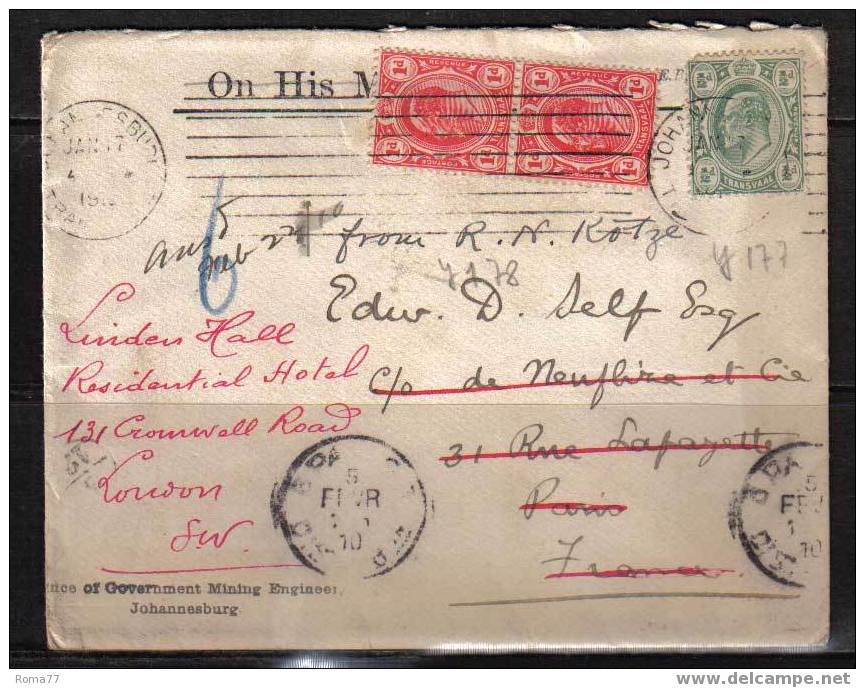 On His M
REVENUE
1d 1d
POSTAGE
TRANSVAAL
REVENUE
1d 1d
POSTAGE
TRANSVAAL
½d ½d
½d ½d
TRANSVAAL
JAN 17
4
191
JOHANN
JAN 17
6
ans
Feb 22
from R. N. Kotzé
y 178
y 177
Edw. D. Self Esq
c/o de Neuflize et Cie
31 Rue Lafayette
Paris
France
Linden Hall
Residential Hotel
131 Cromwell Road
London
S.W.
5
FEVR
10
5
FEV
10
nce of Government Mining Engineer,
Johannesburg
Roma77
www.delcampe.net